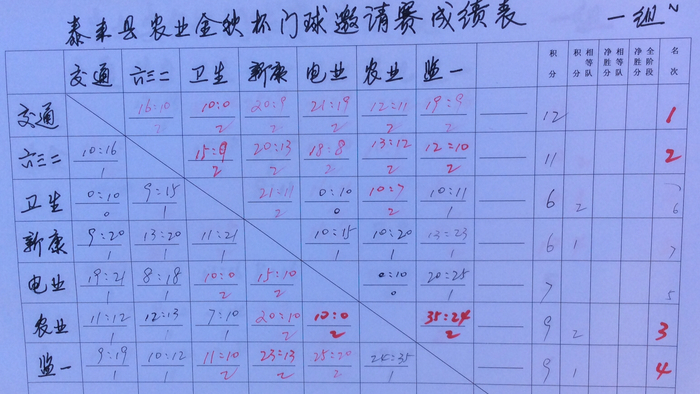 泰来县农业金秋杯门球邀请赛成绩表 一组
交通 六三二 卫生 新康 电业 农业 监一 积分 相等队分 净胜分 相等队净胜分 全阶段净胜分 名次
交通 16:10 2 10:0 2 20:9 2 21:19 2 12:11 2 19:9 2 12 1
六三二 10:16 1 15:9 2 20:13 2 18:8 2 13:12 2 12:10 2 11 2
卫生 0:10 0 9:15 1 21:11 2 0:10 0 10:7 2 10:11 1 6 2 6
新康 9:20 1 13:20 1 11:21 1 10:15 1 10:20 1 13:23 1 6 1 7
电业 19:21 1 8:18 1 10:0 2 15:10 2 0:10 0 20:25 1 7 5
农业 11:12 1 12:13 1 7:10 1 20:10 2 10:0 2 35:24 2 9 2 3
监一 9:19 1 10:12 1 11:10 2 23:13 2 25:20 2 24:35 1 9 1 4